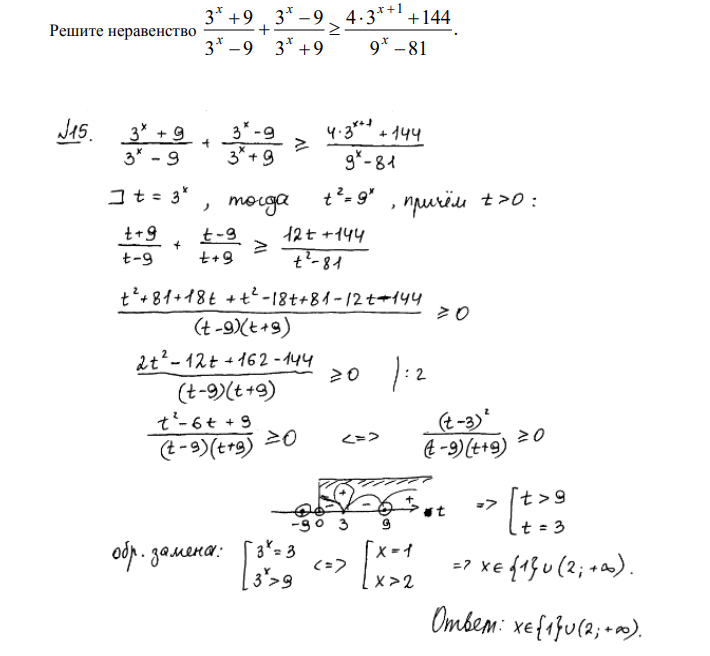 Решите неравенство (3^x + 9)/(3^x − 9) + (3^x − 9)/(3^x + 9) ≥ (4·3^(x+1) + 144)/(9^x − 81).
№15. (3^x + 9)/(3^x − 9) + (3^x − 9)/(3^x + 9) ≥ (4·3^(x+1) + 144)/(9^x − 81)
⊐ t = 3^x , тогда t² = 9^x , причём t > 0 :
(t+9)/(t−9) + (t−9)/(t+9) ≥ (12t + 144)/(t² − 81)
(t² + 81 + 18t + t² − 18t + 81 − 12t − 144)/((t − 9)(t + 9)) ≥ 0
(2t² − 12t + 162 − 144)/((t−9)(t+9)) ≥ 0 | : 2
(t² − 6t + 9)/((t − 9)(t+9)) ≥ 0 <=> (t − 3)²/((t − 9)(t+9)) ≥ 0
− + − + t => [ t > 9
−9 0 3 9 [ t = 3
обр. замена: [ 3^x = 3 <=> [ x = 1
[ 3^x > 9 [ x > 2 => x ∈ {1} ∪ (2; +∞).
Ответ: x ∈ {1} ∪ (2; +∞).